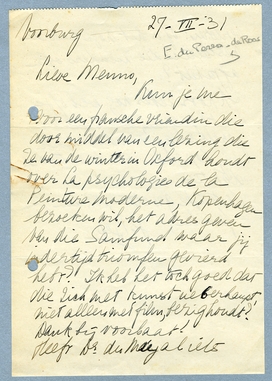 Voorburg 27-III-'31
E. du Perron - de Roos
Lieve Menno,
Kun je me
voor een fransche vriendin die
door middel van een lezing die
ze van de winter in Oxford houdt
over La psychologie de la
Peinture moderne, Kopenhagen
bezoeken wil, het adres geven
van die Samfund waar jij
indertijd triomfen gevierd
hebt? Ik heb het toch goed dat
die zich met kunst überhaupt,
niet alleen met film, bezighoudt?
Dank bij voorbaat!
Heeft Dr. du
iets